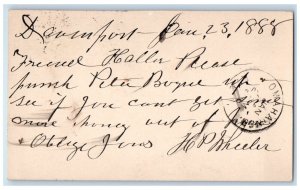 Davenport Jan 23, 1888
Friend Haller Please
punch Peter Bogue up &
see if you cant get
more money out of
& Oblige Yours H P Wheeler